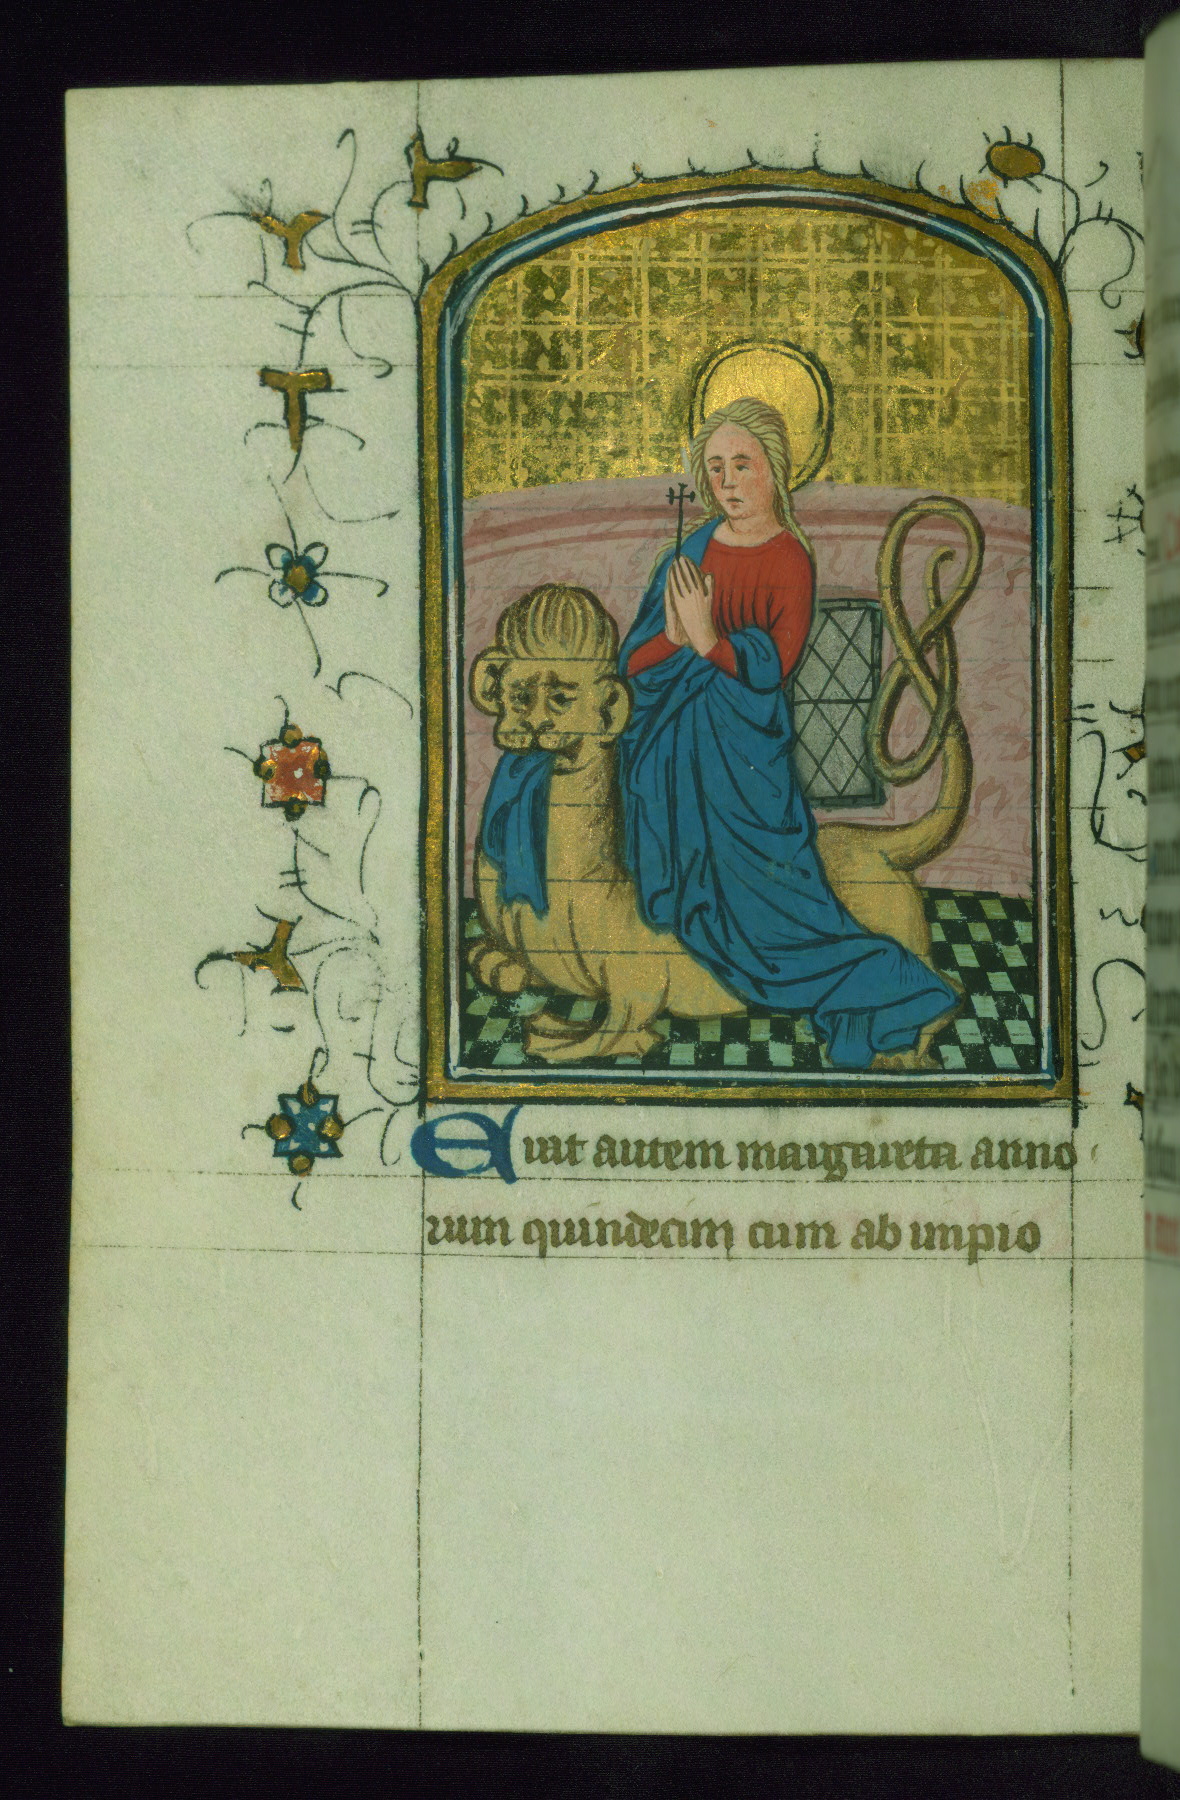 Erat autem margareta anno
rum quindecim cum ab impio